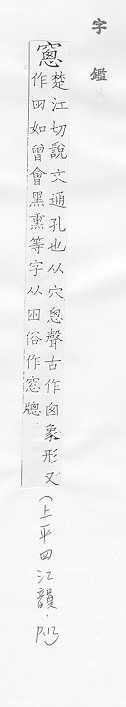 字鑑
窻
楚江切說文通孔也从穴悤聲古作囱象形又
作田如曾會黑熏等字从困俗作窓牕
(上平四江韻. P.13